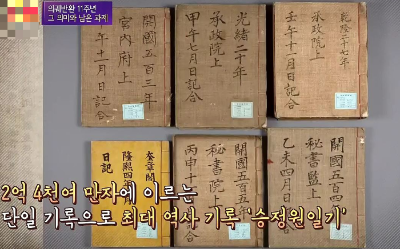 의궤반환 11주년
그 의미와 남은 과제
開國五百三年
宮內府上
午十一月日記合
光緖二十年
承政院上
甲午七月日記合
乾隆二十七年
承政院上
壬午十一月日記合
奎章閣
隆熙四
日記
開國五百五
秘書院上
丙申十
開國五百四
秘書監上
乙未四月日
2억 4천여 만자에 이르는
단일 기록으로 최대 역사 기록 '승정원일기'